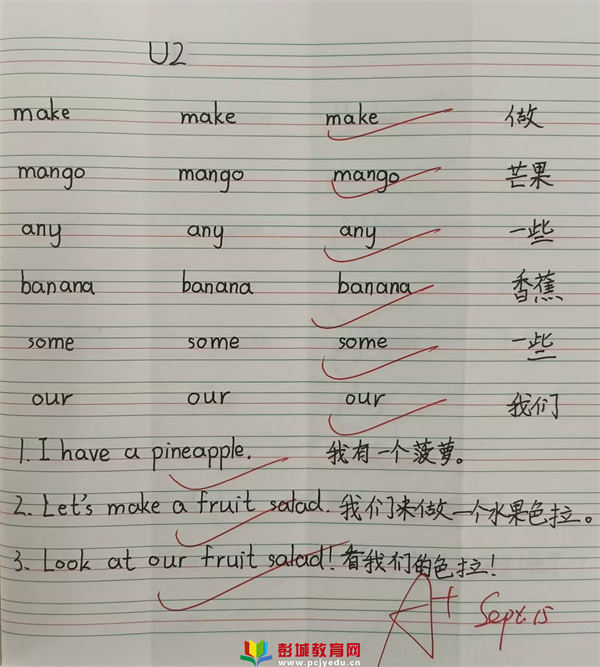 U2
make make make 做
mango mango mango 芒果
any any any 一些
banana banana banana 香蕉
some some some 一些
our our our 我们
1. I have a pineapple. 我有一个菠萝。
2. Let's make a fruit salad. 我们来做一个水果色拉。
3. Look at our fruit salad! 看我们的色拉!
A+ Sept. 15
彭城教育网
www.pcjyedu.cn